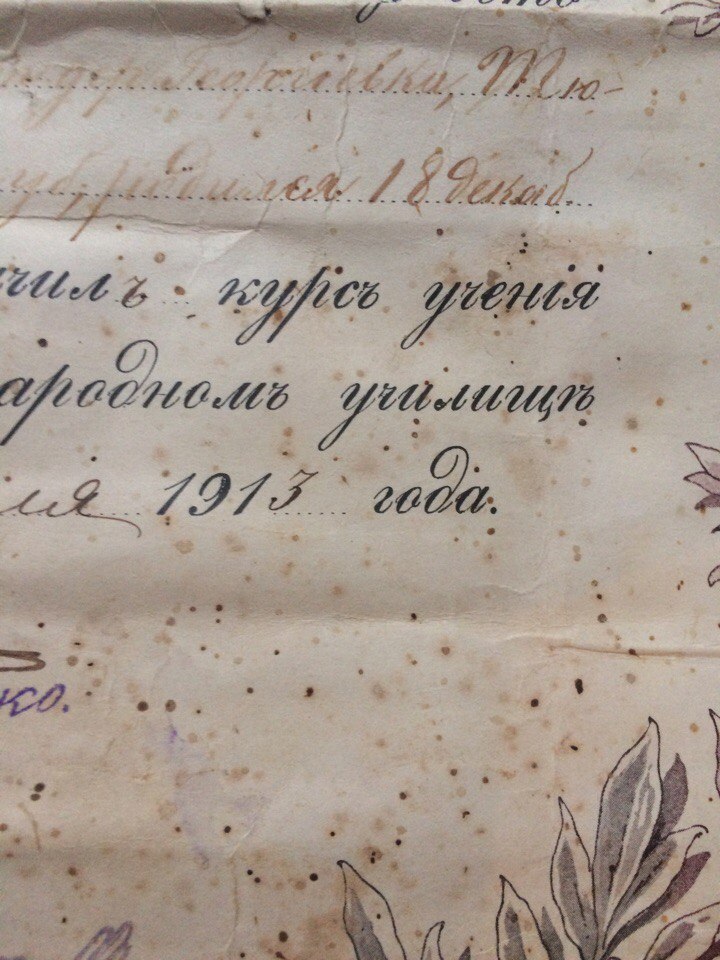 дер. Георгіевки, Тю-
губ, родился 18 декаб.
чилъ курсъ ученія
ародномъ училищѣ
ля 1913 года.
ко.